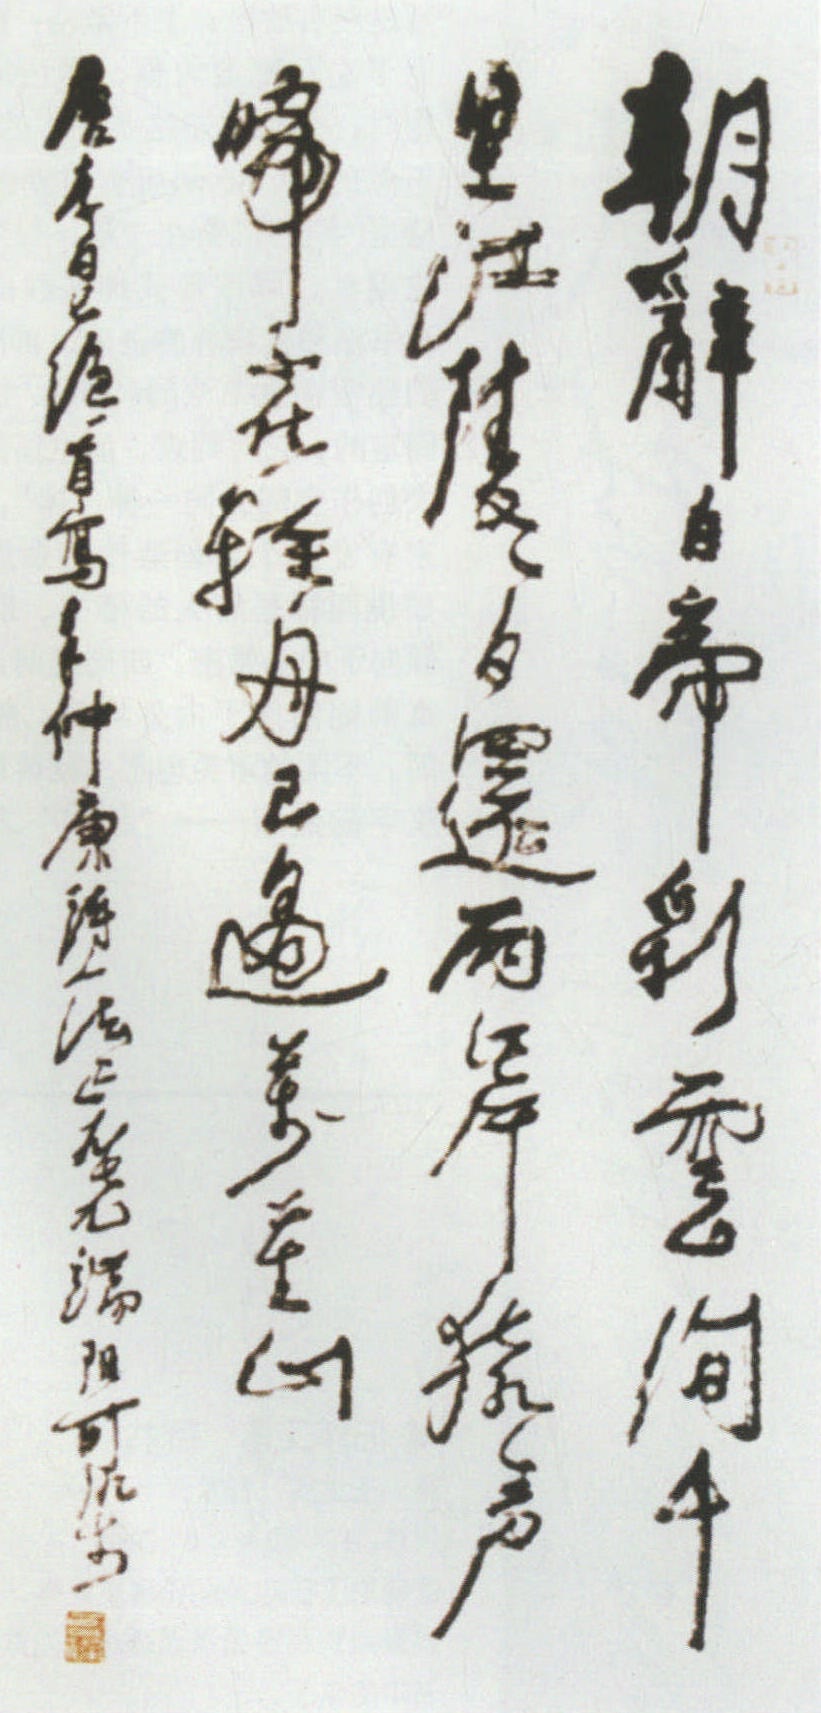 朝辭白帝彩雲間千
里江陵一日還兩岸猿声
啼不住輕舟已過萬重山
唐李白七絕一首寫奉仲康詩人法正端陽